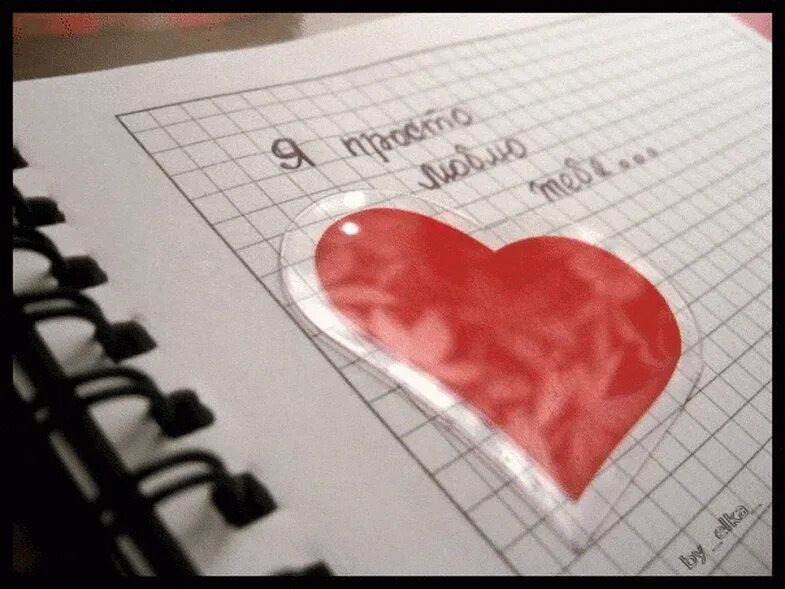 Я просто
люблю
тебя...
by _elka_